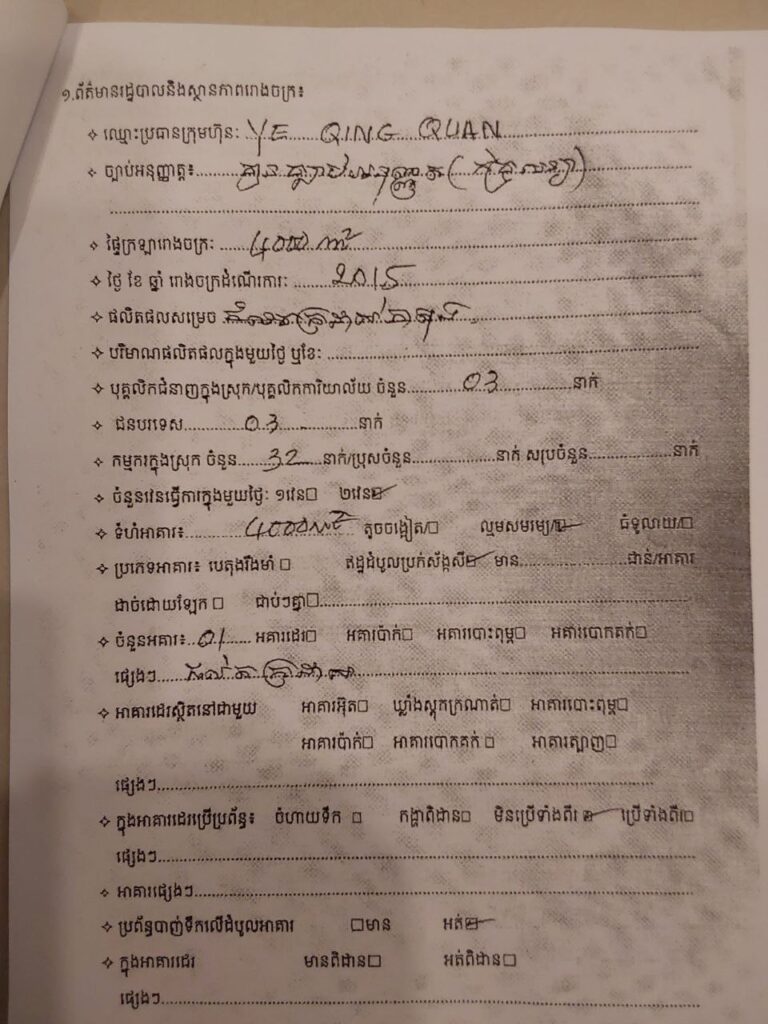 ១.ព័ត៌មានរដ្ឋបាលនិងស្ថានភាពរោងចក្រ៖
❖ ឈ្មោះប្រធានក្រុមហ៊ុនៈ YE QING QUAN
❖ ច្បាប់អនុញ្ញាត្ត៖ គ្មានច្បាប់អនុញ្ញាត
❖ ផ្ទៃក្រឡារោងចក្រៈ 4000 m²
❖ ថ្ងៃ ខែ ឆ្នាំ រោងចក្រដំណើរការៈ 2015
❖ ផលិតផលសម្រេច
❖ បរិមាណផលិតផលក្នុងមួយថ្ងៃ ឬខែៈ
❖ បុគ្គលិកជំនាញក្នុងស្រុក/បុគ្គលិកការិយាល័យ ចំនួន 03 នាក់
❖ ជនបរទេស 03 នាក់
❖ កម្មករក្នុងស្រុក ចំនួន 32 នាក់/ប្រុសចំនួន នាក់ សរុបចំនួន នាក់
❖ ចំនួនវេនធ្វើការក្នុងមួយថ្ងៃៈ ១វេន☐ ២វេន☑
❖ ទំហំអាគារ៖ 4000m² តូចចង្អៀត/☐ ល្មមសមរម្យ/☑ ធំទូលាយ/☐
❖ ប្រភេទអាគារ៖ បេតុងរឹងមាំ ☐ ឥដ្ឋដំបូលប្រក់ស័ង្កសី☑ មាន ជាន់/អាគារ
ដាច់ដោយឡែក ☐ ជាប់ៗគ្នា☐
❖ ចំនួនអគារ៖ 01 អគារដេរ☐ អគារប៉ាក់☐ អគារបោះពុម្ព☐ អគារបោកគក់☐
ផ្សេងៗ
❖ អាគារដេរស្ថិតនៅជាមួយ អាគារអ៊ុត☐ ឃ្លាំងស្តុកក្រណាត់☐ អាគារបោះពុម្ព☐
អាគារប៉ាក់☐ អាគារបោកគក់ ☐ អាគារត្បាញ☐
ផ្សេងៗ
❖ ក្នុងអាគារដេរប្រើប្រព័ន្ធ៖ ចំហាយទឹក ☐ កង្ហាពិដាន☐ មិនប្រើទាំងពីរ ☑ ប្រើទាំងពីរ☐
ផ្សេងៗ
❖ អាគារផ្សេងៗ
❖ ប្រព័ន្ធបាញ់ទឹកលើដំបូលអាគារ ☐មាន អត់☑
❖ ក្នុងអាគារដេរ មានពិដាន☐ អត់ពិដាន☐
ផ្សេងៗ